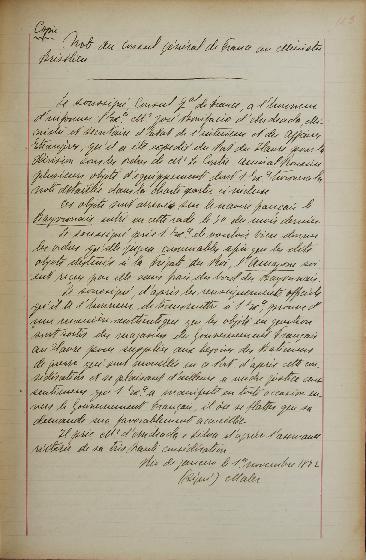 Copie
Note du Consul général de France au Ministre
Brésilien
Le soussigné, Consul gal de France, a l'honneur
d'informer S. Exce Mr José Bonifacio d'Andrada, Mi-
nistre et Secrétaire d'Etat de l'intérieur et des affaires
Etrangères, qu'il a été expédié du Port du Havre pour la
division sous les ordres de Mr le Contre amiral
plusieurs objets d'équipement, dont S. Exce trouvera la
note détaillée dans la charte partie ci incluse
Ces objets sont arrivés sur le navire français le
Bayonnais entré en cette rade le 30 du mois dernier.
Le soussigné prie S. Exce de vouloir bien donner
les ordres qu'elle jugera convenables afin que les dits
objets destinés à la frégate du Roi, l'Amazone soi-
ent reçus par elle sans frais du bord du Bayonnais.
Le soussigné d'après les renseignements officiels
qu'il a l'honneur de transmettre à S. Exce, prouve d'
une manière authentique que les objets en question
sont sortis des magasins du Gouvernement français
au Havre pour suppléer aux besoins des Bâtiments
de guerre qui sont mouillés en ce Port d'après cette con-
sidération et se plaisant d'ailleurs à rendre justice aux
sentiments que S. Exce a manifestés en toute occasion en-
vers le Gouvernement français, il ose se flatter que sa
demande sera favorablement accueillie.
Il prie Mr d'Andrada e Silva d'agréer l'assurance
réitérée de sa très haute considération
Rio de janeiro le 1er novembre 1822
(Signé) Maler